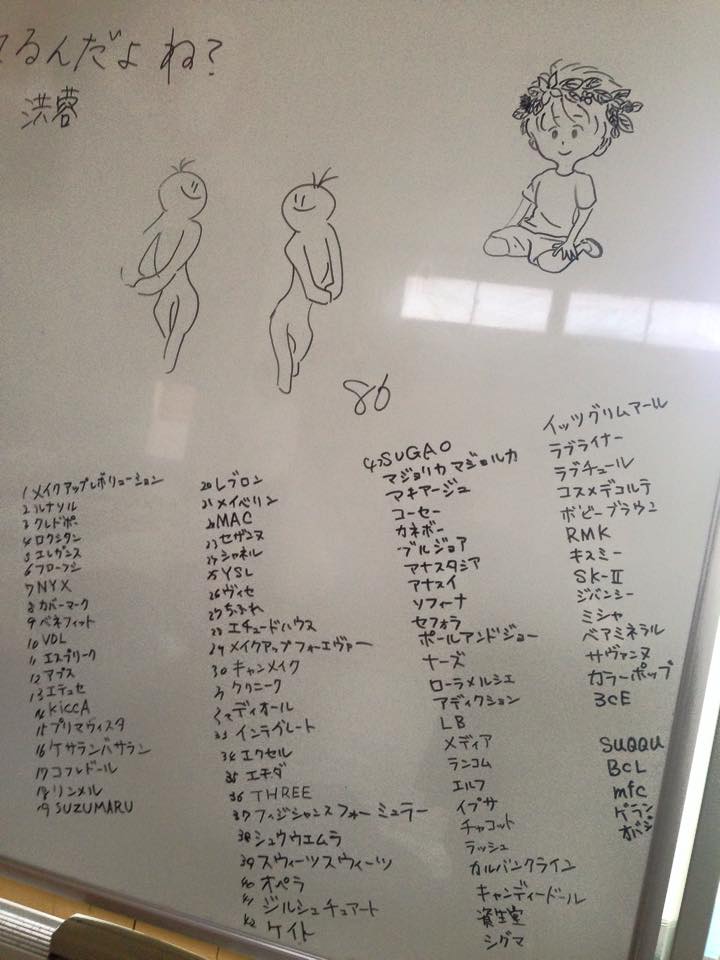 てるんだよね?
洪蓉
86
1 メイクアップレボリューション
2 ルナソル
3 クレドポー
4 ロクシタン
5 エレガンス
6 フローフシ
7 NYX
8 カバーマーク
9 ベネフィット
10 VDL
11 エスプリーク
12 アプス
13 エテュセ
14 KiccA
15 プリマヴィスタ
16 ケサランパサラン
17 コフレドール
18 リンメル
19 SUZUMARU
20 レブロン
21 メイベリン
22 MAC
23 セザンヌ
24 シャネル
25 YSL
26 ヴィセ
27 ちふれ
28 エチュードハウス
29 メイクアップフォーエヴァー
30 キャンメイク
31 クリニーク
32 ディオール
33 インテグレート
34 エクセル
35 エチダ
36 THREE
37 フィジシャンスフォーミュラー
38 シュウウエムラ
39 スウィーツスウィーツ
40 オペラ
41 ジルシュチュアート
42 ケイト
43 SUGAO
マジョリカマジョルカ
マキアージュ
コーセー
カネボー
ブルジョア
アナスタシア
アナスイ
ソフィーナ
セフォラ
ポールアンドジョー
ナーズ
ローラメルシエ
アディクション
LB
メディア
ランコム
エルフ
イプサ
チャコット
ラッシュ
カルバンクライン
キャンディードール
資生堂
シグマ
イッツグリムアール
ラブライナー
ラブチュール
コスメデコルテ
ボビーブラウン
RMK
キスミー
SK-II
ジバンシー
ミシャ
ベアミネラル
サヴァンヌ
カラーポップ
3CE
SUQQU
BCL
mfc
ゲラン
オバジ